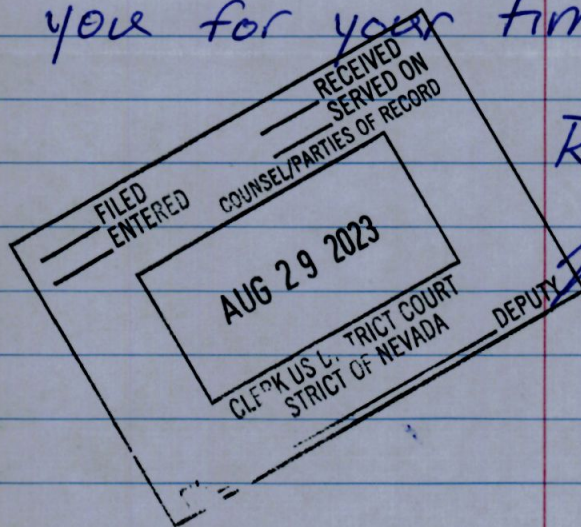 you for your
FILED
ENTERED
RECEIVED
SERVED ON
COUNSEL/PARTIES OF RECORD
AUG 29 2023
CLERK US TRICT COURT
STRICT OF NEVADA
DEPUTY